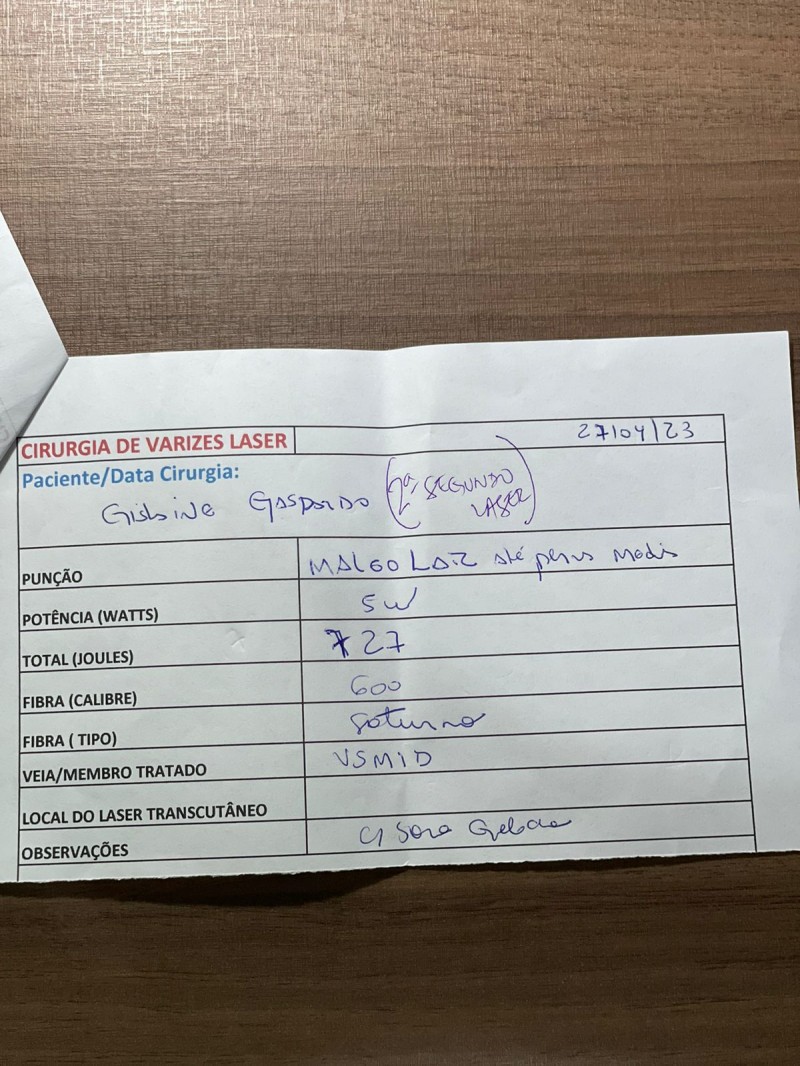 CIRURGIA DE VARIZES LASER 27/04/23
Paciente/Data Cirurgia:
Gislaine Gaspardo (2º SEGUNDO
LASER)
PUNÇÃO MALEOLAR até perna
POTÊNCIA (WATTS) 5W
TOTAL (JOULES) 727
FIBRA (CALIBRE) 600
FIBRA ( TIPO)
VEIA/MEMBRO TRATADO VSMID
LOCAL DO LASER TRANSCUTÂNEO
OBSERVAÇÕES c/ Soro Gelado